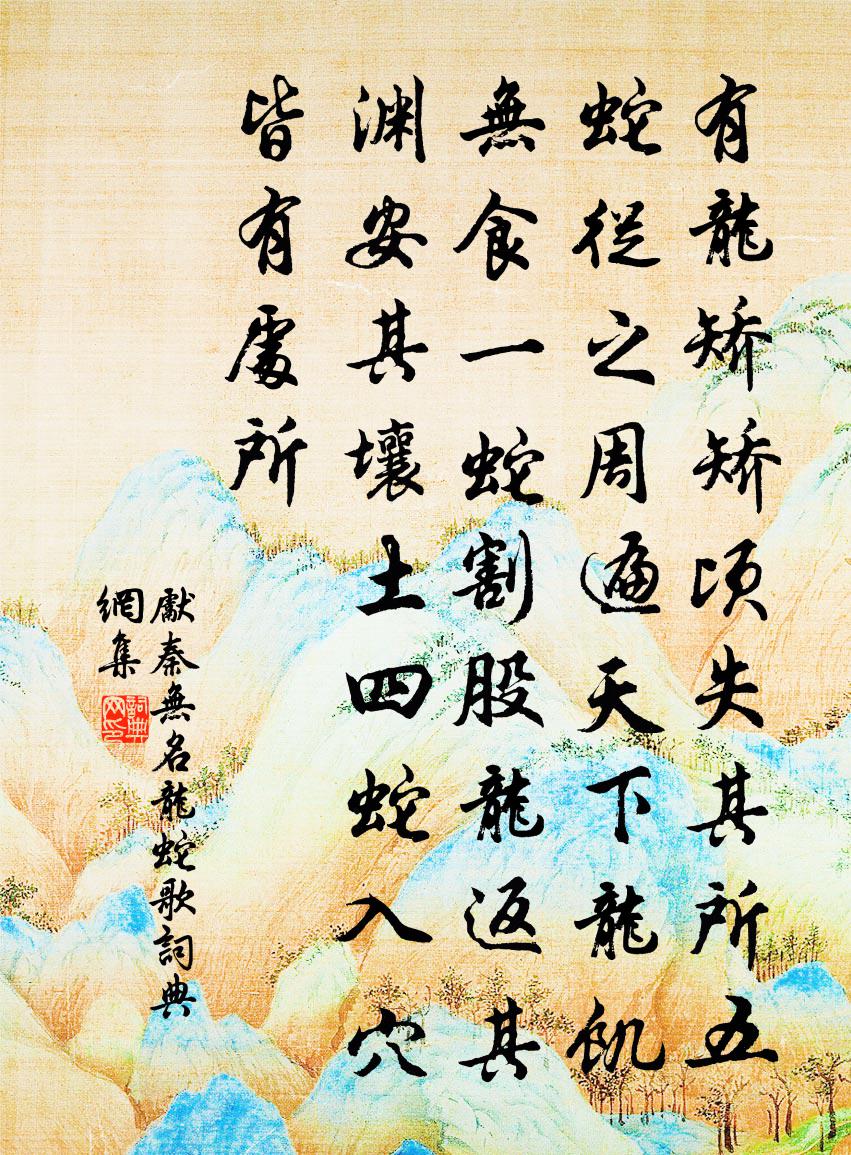 有龍矯矯頃失其所五
蛇從之周遍天下龍飢
無食一蛇割股龍返其
淵安其壤土四蛇入穴
皆有處所
獻秦無名龍蛇歌詞典
網集
詞典
网印